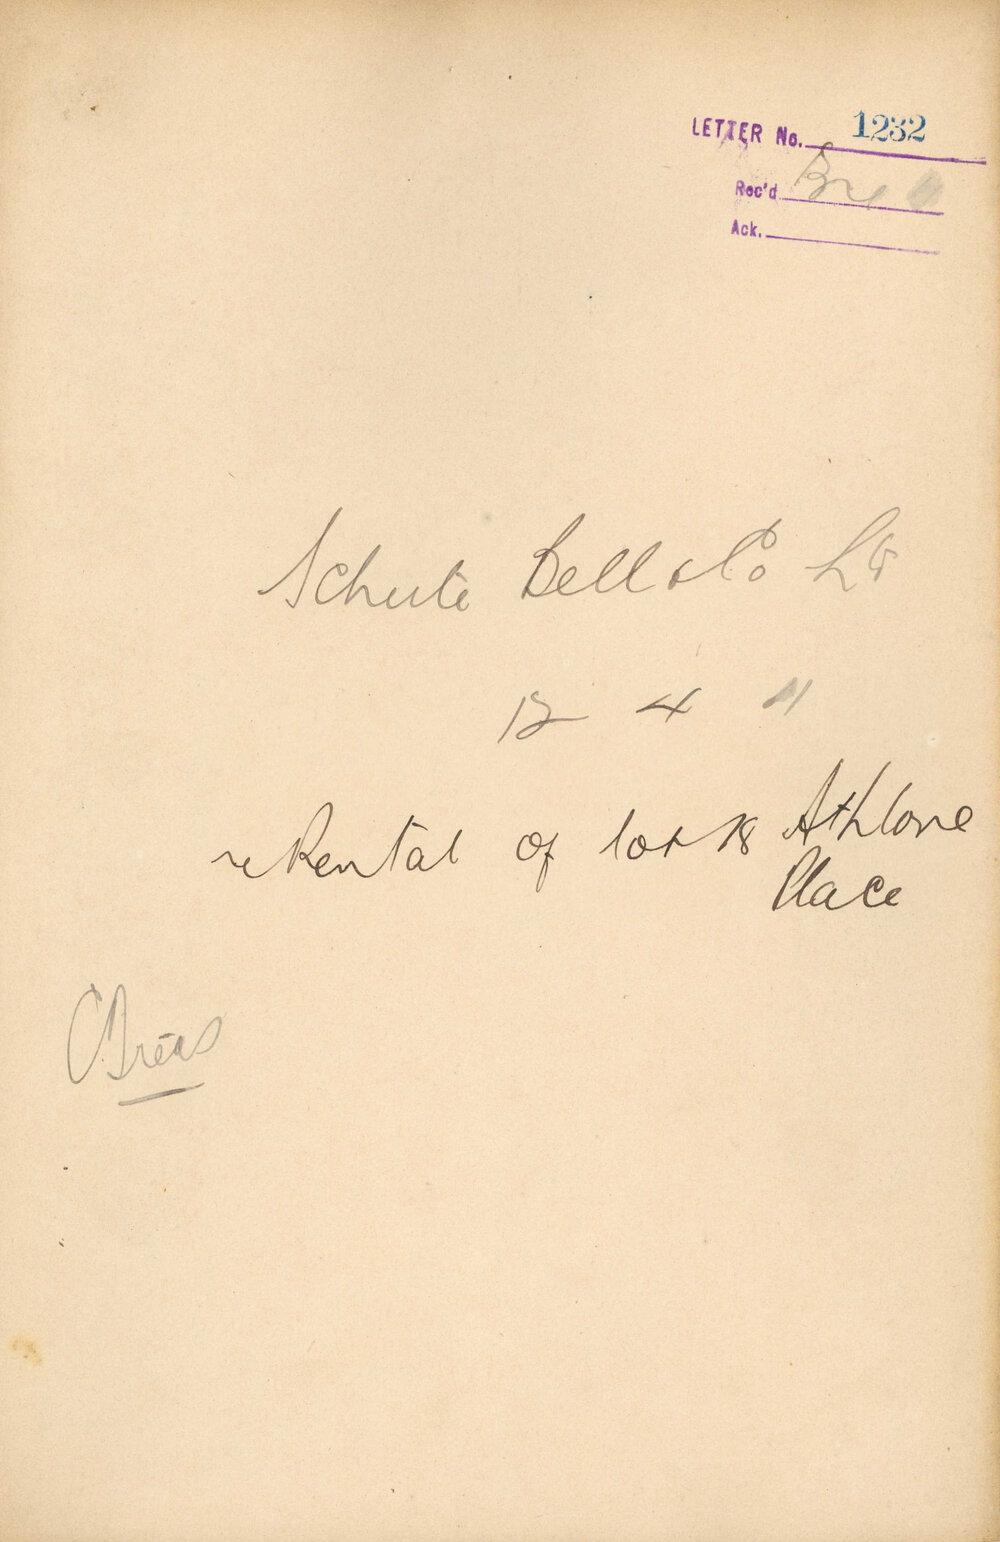 LETTER No. 1232
Rec'd
Ack.
Schute Bell & Co Ld
12 4 11
re Rental of lot 18 Athlone
Place